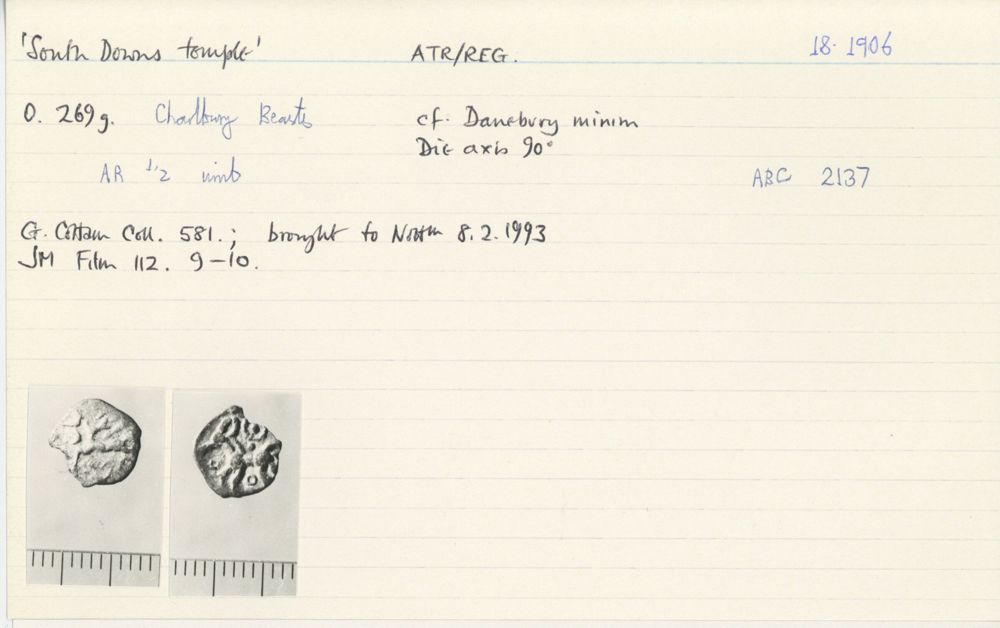 'South Downs temple' ATR/REG. 18-1906
0. 269g. Charlbury Beasts cf. Danebury minim
Die axis 90°
AR 1/2 unit ABC 2137
G. Cottam Coll. 581.; brought to 8.2.1993
JM Film 112. 9-10.